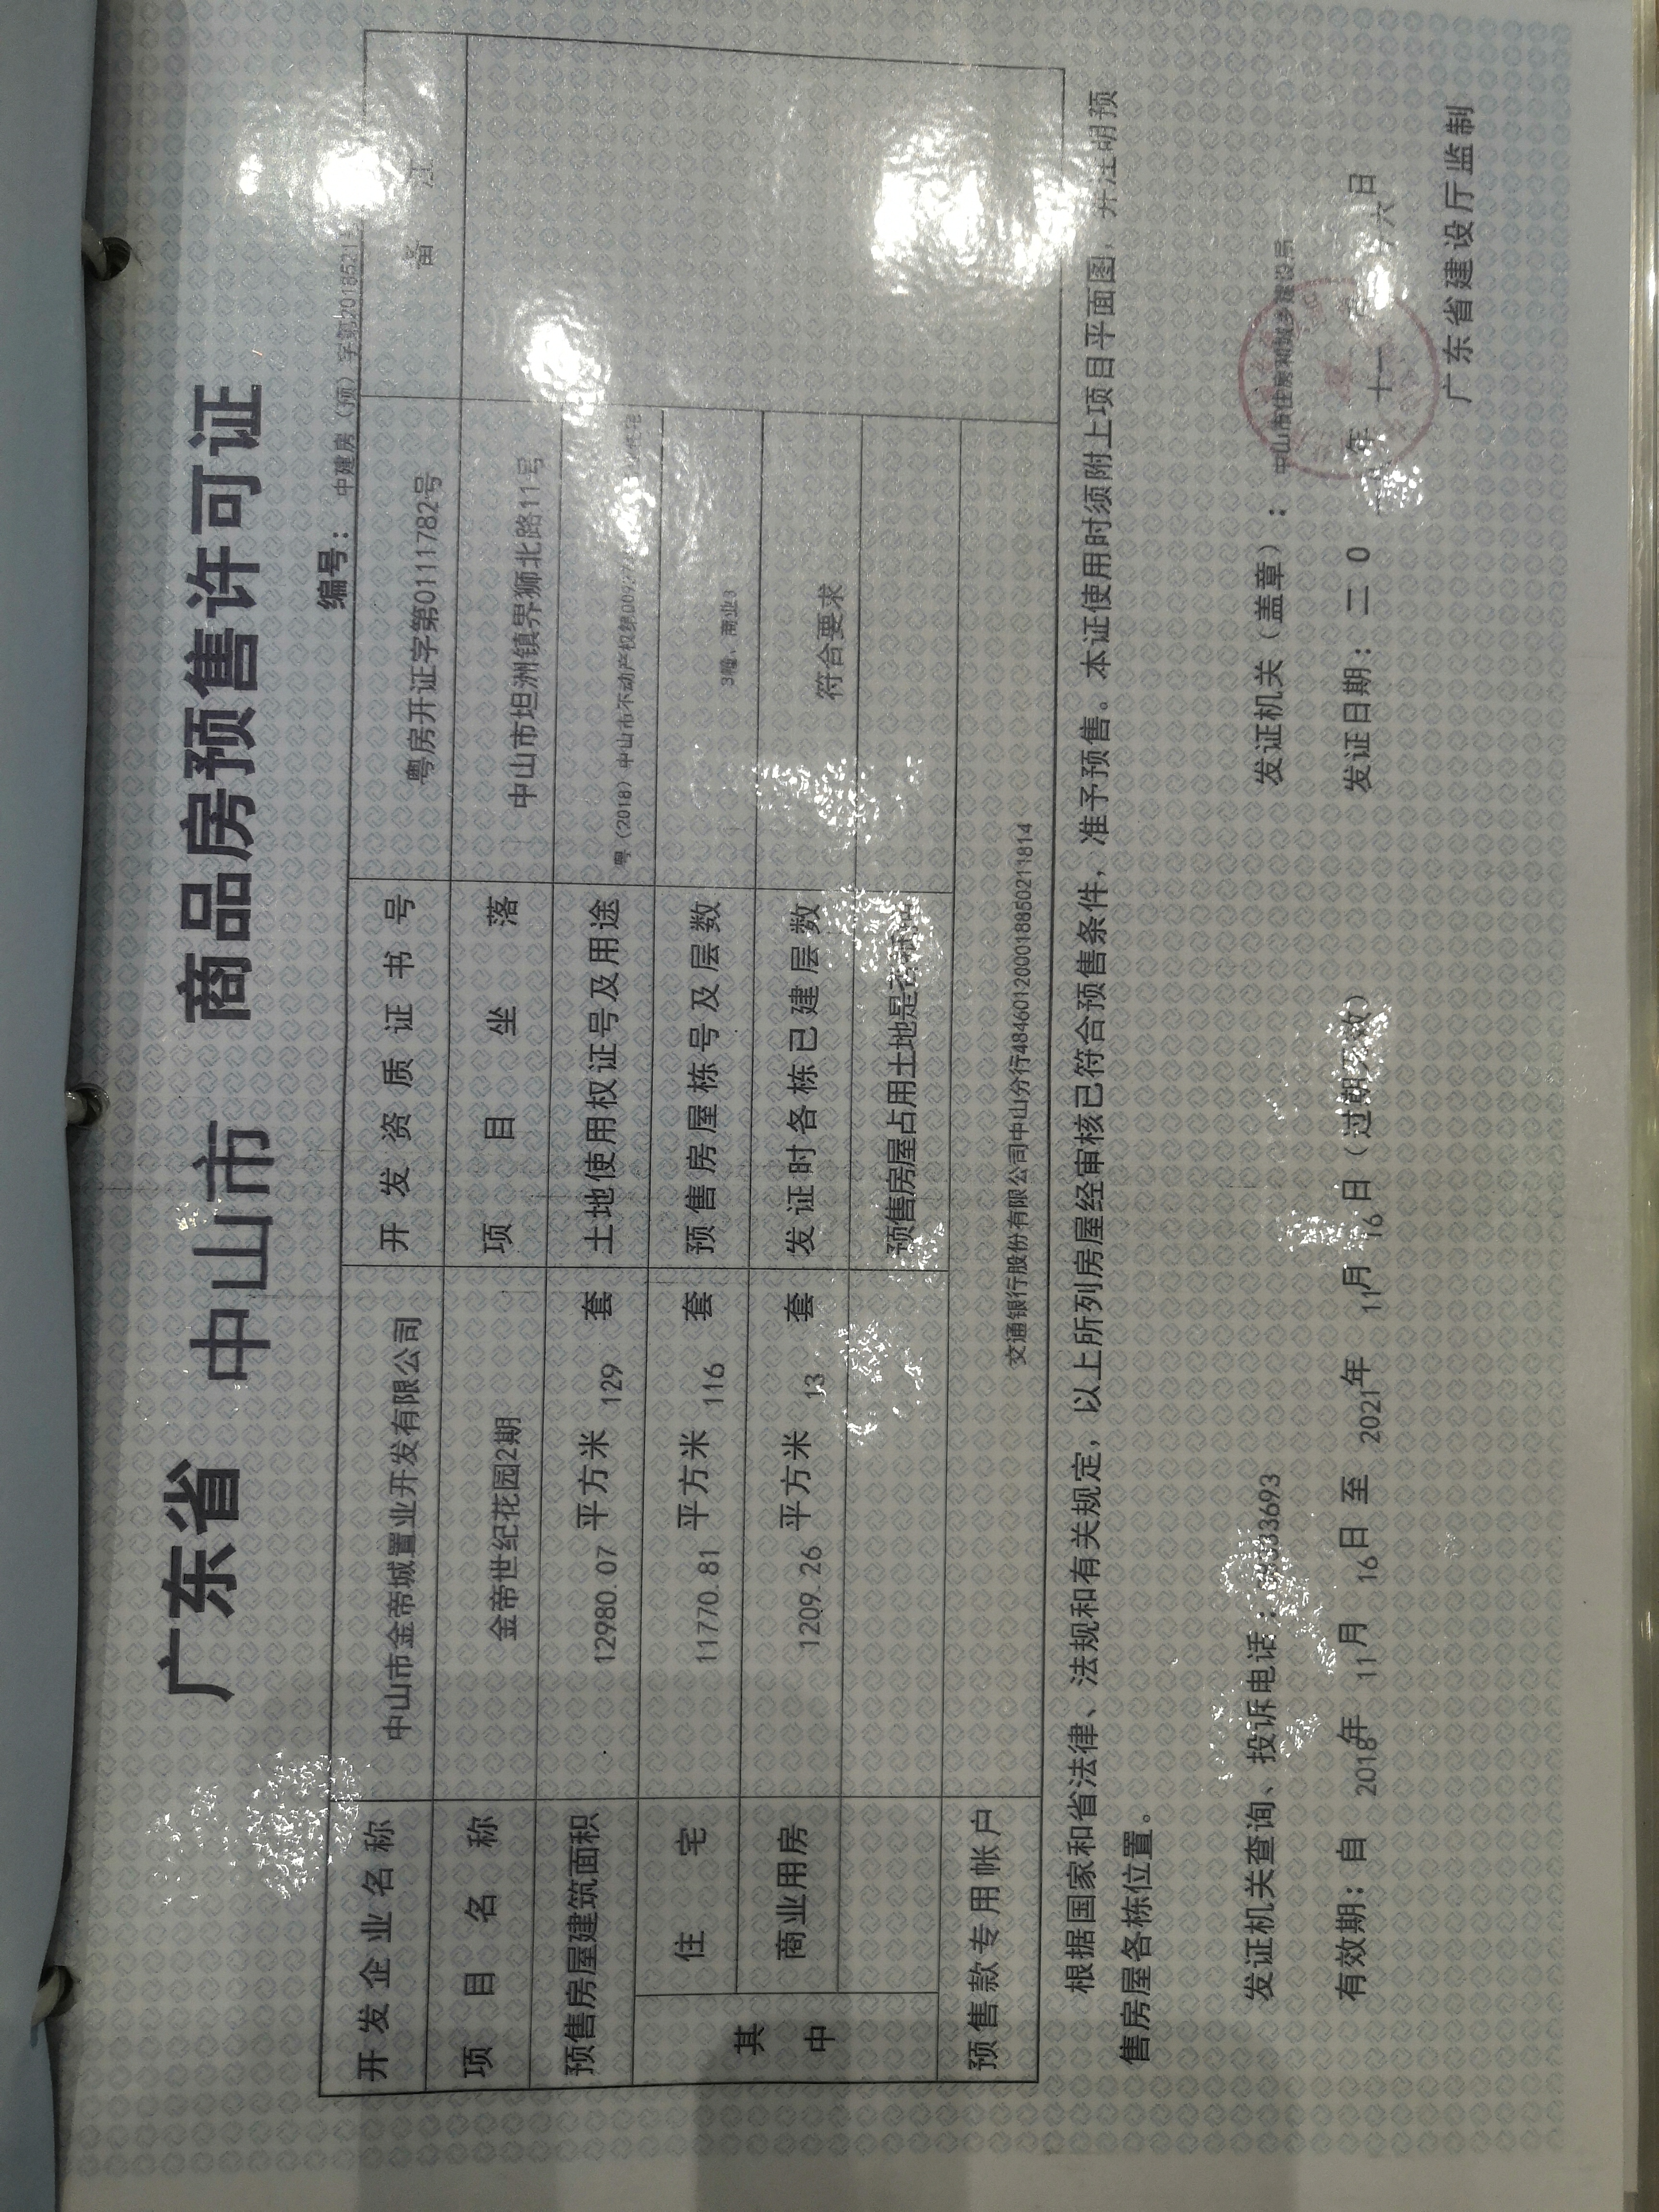 广东省 中山市 商品房预售许可证
编号： 中建房（预）字第2018521
开发企业名称 中山市金帝城置业开发有限公司 开发资质证书号 粤房开证字第0111782号 备 注
项目名称 金帝世纪花园2期 项目坐落 中山市坦洲镇界狮北路11号
预售房屋建筑面积 12980.07 平方米 129 套 土地使用权证号及用途 粤（2018）中山市不动产权第
其中 住宅 11770.81 平方米 116 套 预售房屋栋号及层数 3幢、商业
商业用房 1209.26 平方米 13 套 发证时各栋已建层数 符合要求
预售房屋占用土地是否
预售款专用帐户 交通银行股份有限公司中山分行484601200018850211814
根据国家和省法律、法规和有关规定，以上所列房屋经审核已符合预售条件，准予预售。本证使用时须附上项目平面图，并注明预
售房屋各栋位置。
发证机关查询、投诉电话： 发证机关（盖章）： 中山市住房和城乡建设局
有效期：自 2018年 11月 16日 至 2021年 11月 16日（过期失效） 发证日期：二 0 年 十一 六日
广东省建设厅监制